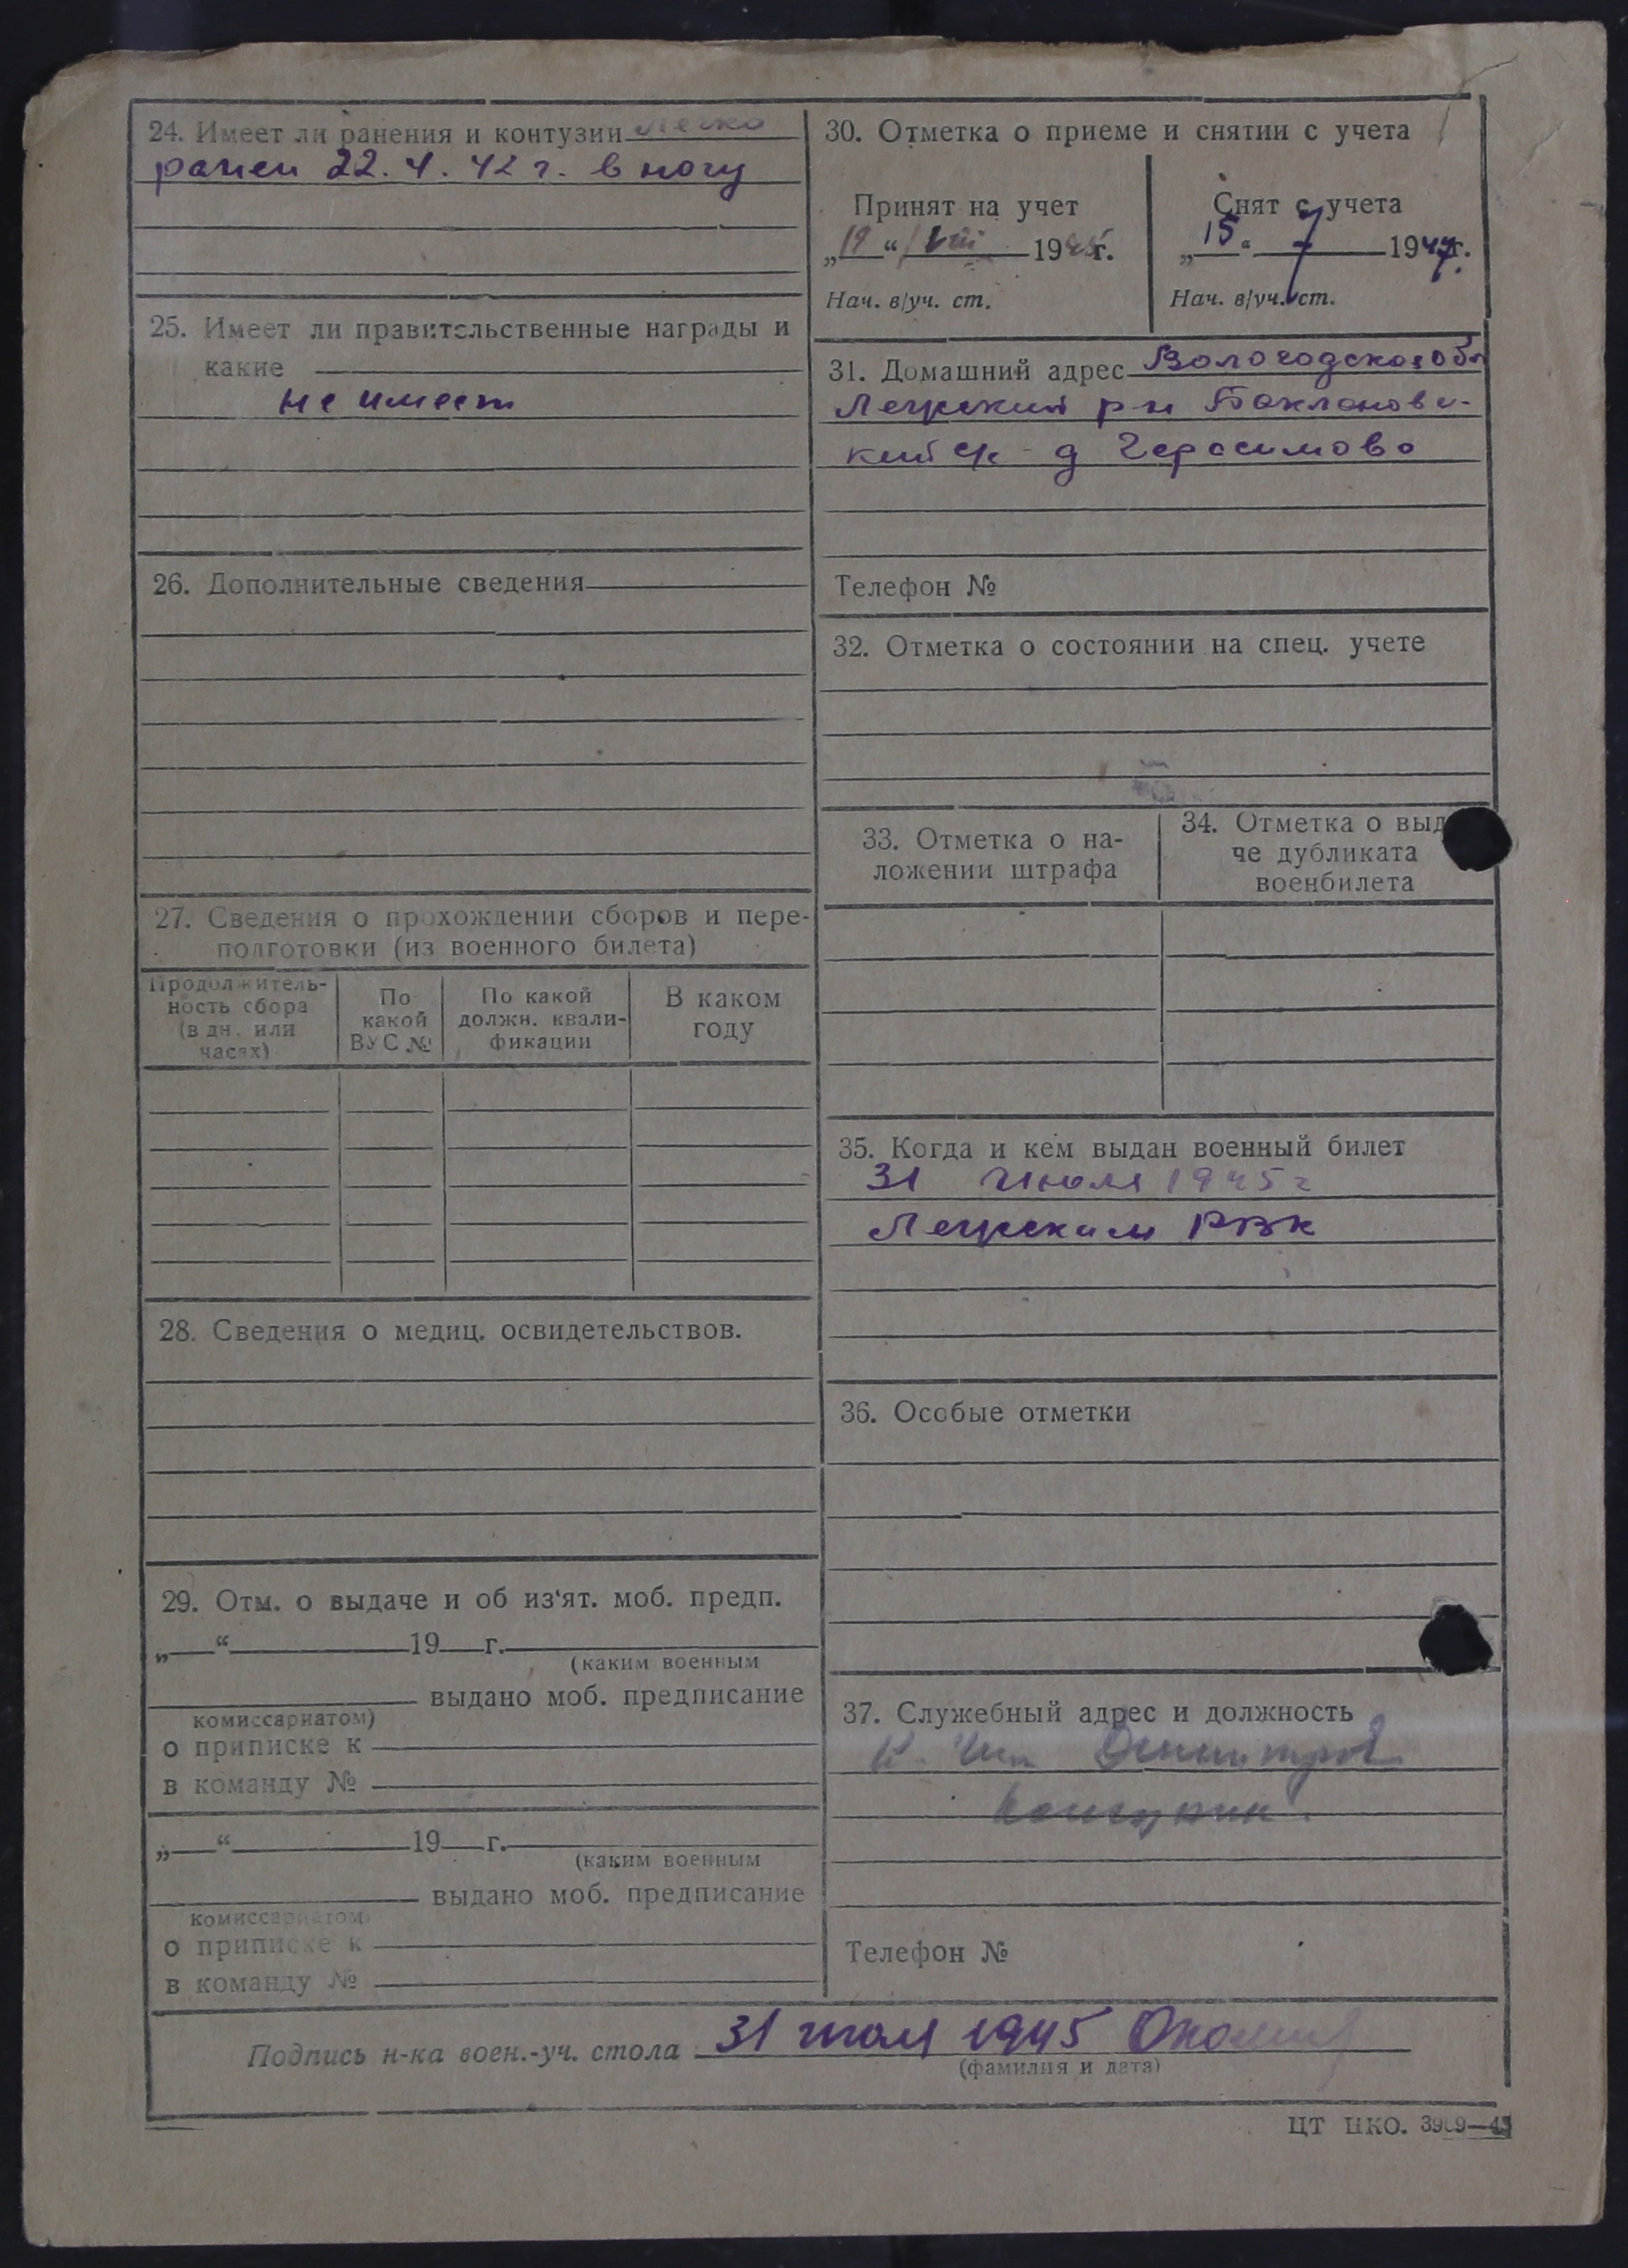 24. Имеет ли ранения и контузии легко
ранен 22.4.42 г. в ногу
25. Имеет ли правительственные награды и
какие
не имеет
26. Дополнительные сведения
27. Сведения о прохождении сборов и пере-
подготовки (из военного билета)
Продолжитель-
ность сбора
(в дн. или
часах)
По
какой
ВУС №
По какой
должн. квали-
фикации
В каком
году
28. Сведения о медиц. освидетельствов.
29. Отм. о выдаче и об из‘ят. моб. предп.
„ “ 19 г.
(каким военным
выдано моб. предписание
комиссариатом)
о приписке к
в команду №
„ “ 19 г.
(каким военным
выдано моб. предписание
комиссариатом)
о приписке к
в команду №
30. Отметка о приеме и снятии с учета
Принят на учет
„19“ VIII 1945г.
Нач. в/уч. ст.
Снят с учета
„15“ 7 1947г.
Нач. в/уч. ст.
31. Домашний адрес Вологодская обл
Лежский р-н Бакланов
ский с/с д Герасимово
Телефон №
32. Отметка о состоянии на спец. учете
33. Отметка о на-
ложении штрафа
34. Отметка о выд
че дубликата
военбилета
35. Когда и кем выдан военный билет
31 июля 1945 г
Лежским РВК
36. Особые отметки
37. Служебный адрес и должность
Телефон №
Подпись н-ка воен.-уч. стола 31 июля 1945
(фамилия и дата)
ЦТ НКО. 3909—45